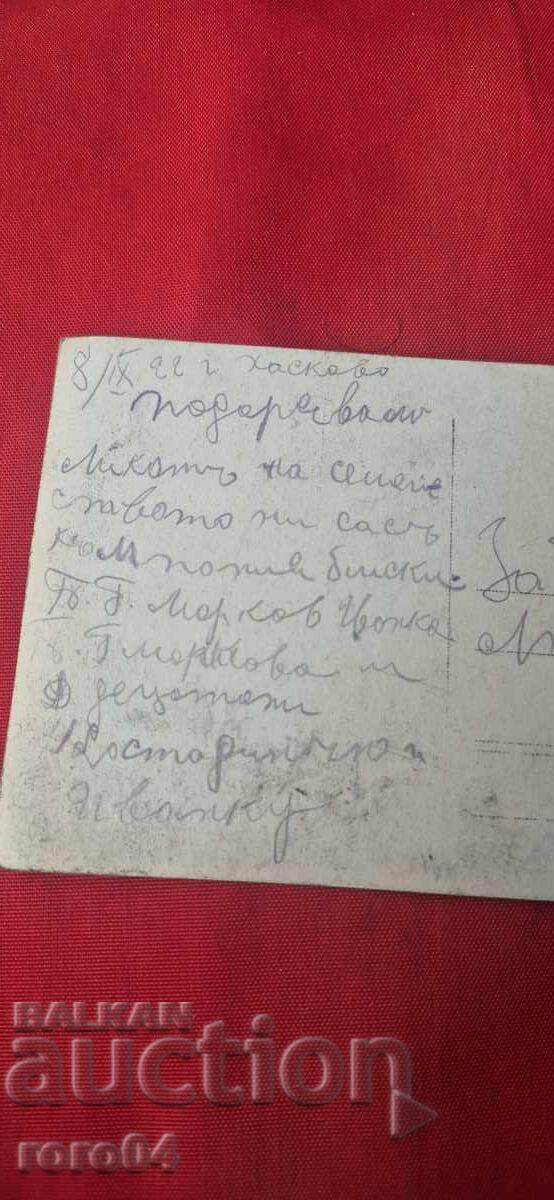 8/IX 22 г. Хасково
подарявам
Ликатъ на семей
ството ни сасъ
компания блиски
П. Г. Марков Цонка
П. Г Маркова и
децатани
Костадинчю и
Иванку
За
BALKAN
auction
roro04